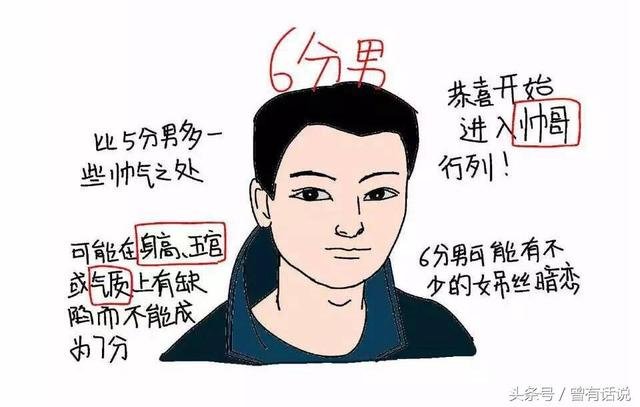 6分男
恭喜开始
进入帅哥
行列!
比5分男多一
些帅气之处
可能在身高、五官
或气质上有缺
陷而不能成
为7分
6分男可能有不
少的女吊丝暗恋
头条号 / 曾有话说